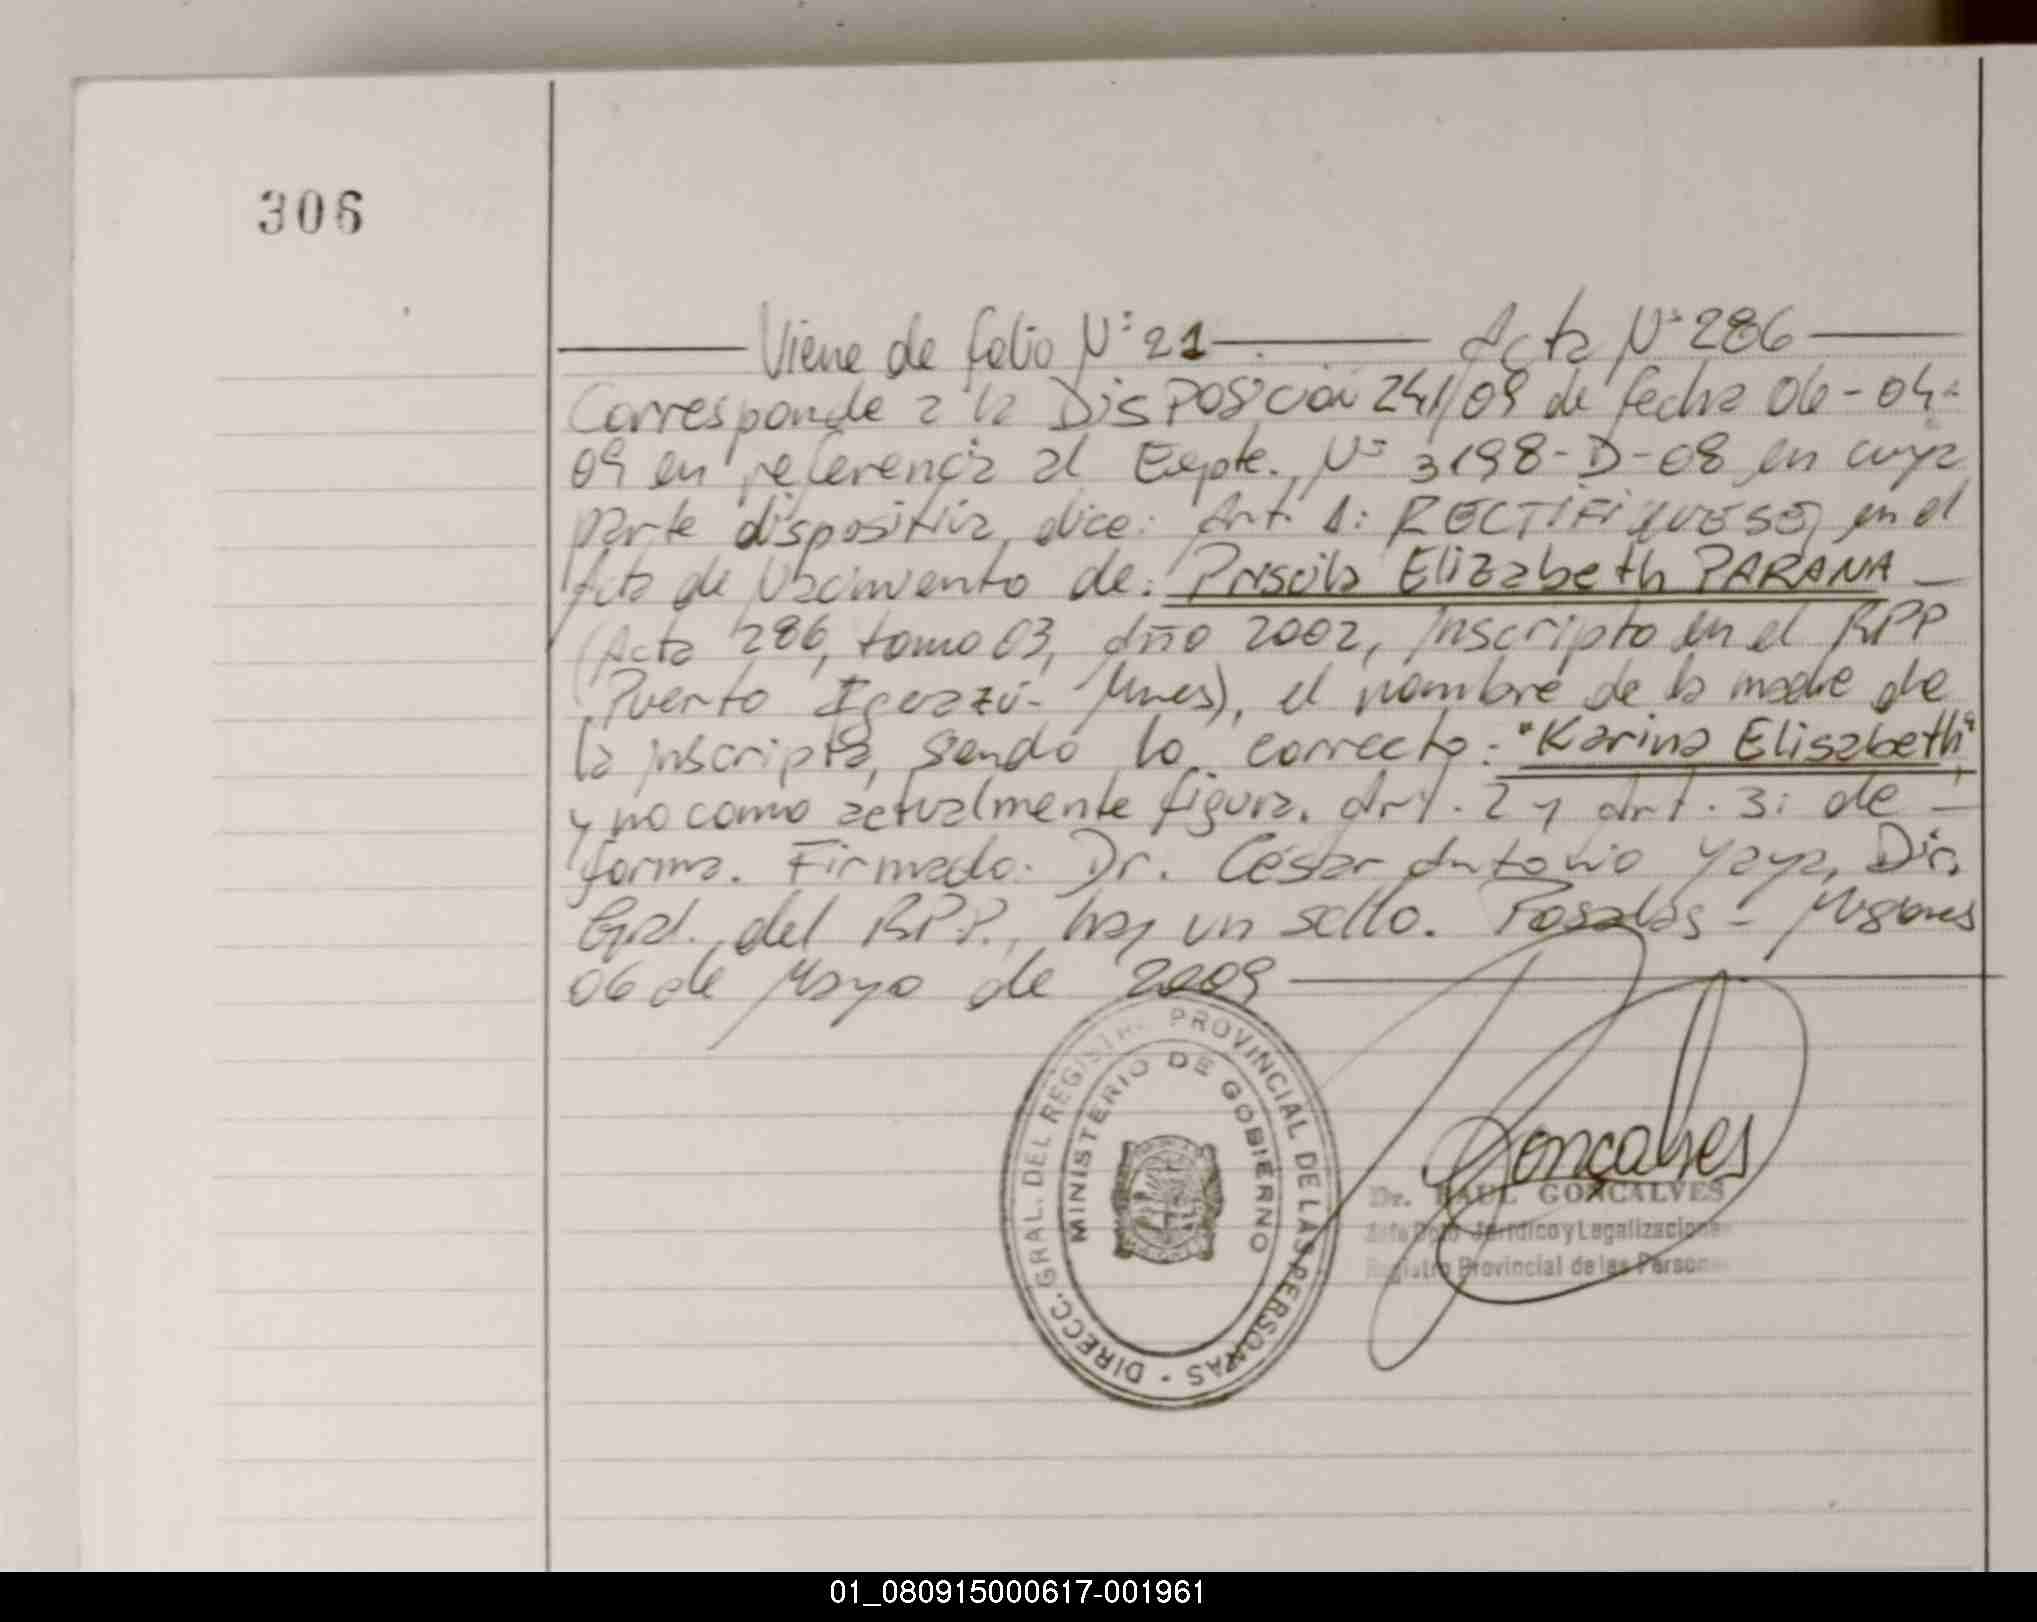 306
Viene de folio Nº 21 Acta Nº 286
Corresponde a la Disposición 241/09 de fecha 06-04-
09 en referencia al Expte. Nº 3198-D-08 en cuya
parte dispositiva dice: Art. 1: RECTIFIQUESE, en el
Acta de Nacimiento de: Priscila Elizabeth PARANA
(Acta 286, tomo 03, Año 2002, Inscripto en el RPP
Puerto Iguazú- Mnes), el nombre de la madre de
la inscripta, siendo lo correcto: "Karina Elisabeth",
y no como actualmente figura. Art. 2 y Art. 3: de
forma. Firmado: Dr. César Antonio Yaya, Dir.
Gral. del RPP., hay un sello. Posadas - Misiones
06 de Mayo de 2009
DIRECC. GRAL. DEL REGISTRO PROVINCIAL DE LAS PERSONAS -
MINISTERIO DE GOBIERNO
Gonçalves
Dr. RAUL GONÇALVES
Jefe Dpto Jurídico y Legalizaciones
Registro Provincial de las Personas
01_080915000617-001961